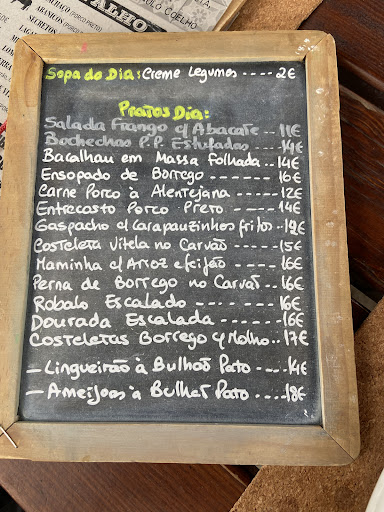 PAULO COELHO
Sopa do Dia: Creme Legumes ---- 2€
Pratos Dia:
Salada Frango c/ Abacate -- 11€
Bochechas P.P. Estufadas ---- 14€
Bacalhau em Massa Folhada -- 14€
Ensopado de Borrego ------ 16€
Carne Porco à Alentejana ---- 12€
Entrecosto Porco Preto ---- 14€
Gaspacho c/ Carapauzinhos fritos - 12€
Costeleta Vitela no Carvão ---- 15€
Maminha c/ Arroz e feijão ---- 16€
Perna de Borrego no Carvão -- 16€
Robalo Escalado -------- 16€
Dourada Escalada ------- 16€
Costeletas Borrego c/ Molho -- 17€
- Lingueirão à Bulhão Pato ---- 14€
- Ameijoas à Bulhão Pato ---- 18€